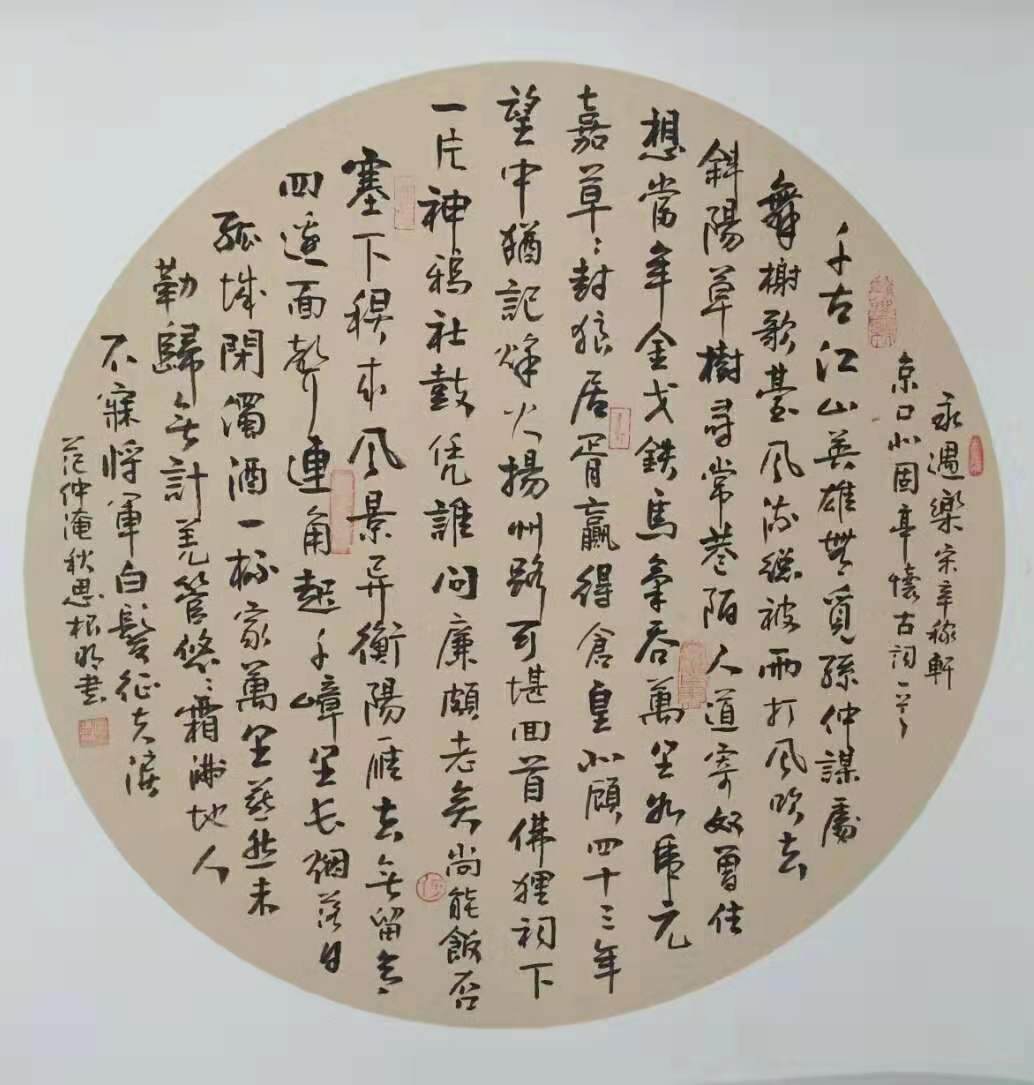 永遇樂宋辛稼軒
京口北固亭懷古詞一首
千古江山英雄無覓孫仲謀處
舞榭歌臺風流總被雨打風吹去
斜陽草樹尋常巷陌人道寄奴曾住
想當年金戈鐵馬氣吞萬里如虎元
嘉草〻封狼居胥贏得倉皇北顧四十三年
望中猶記烽火揚州路可堪回首佛狸祠下
一片神鴉社鼓凭誰問廉頗老矣尚能飯否
塞下秋來風景異衡陽雁去無留意
四邊面聲連角起千嶂里長烟落日
孤城閉濁酒一杯家萬里燕然未
勒歸無計羌管悠〻霜滿地人
不寐將軍白髮征夫淚
范仲淹秋思根明書